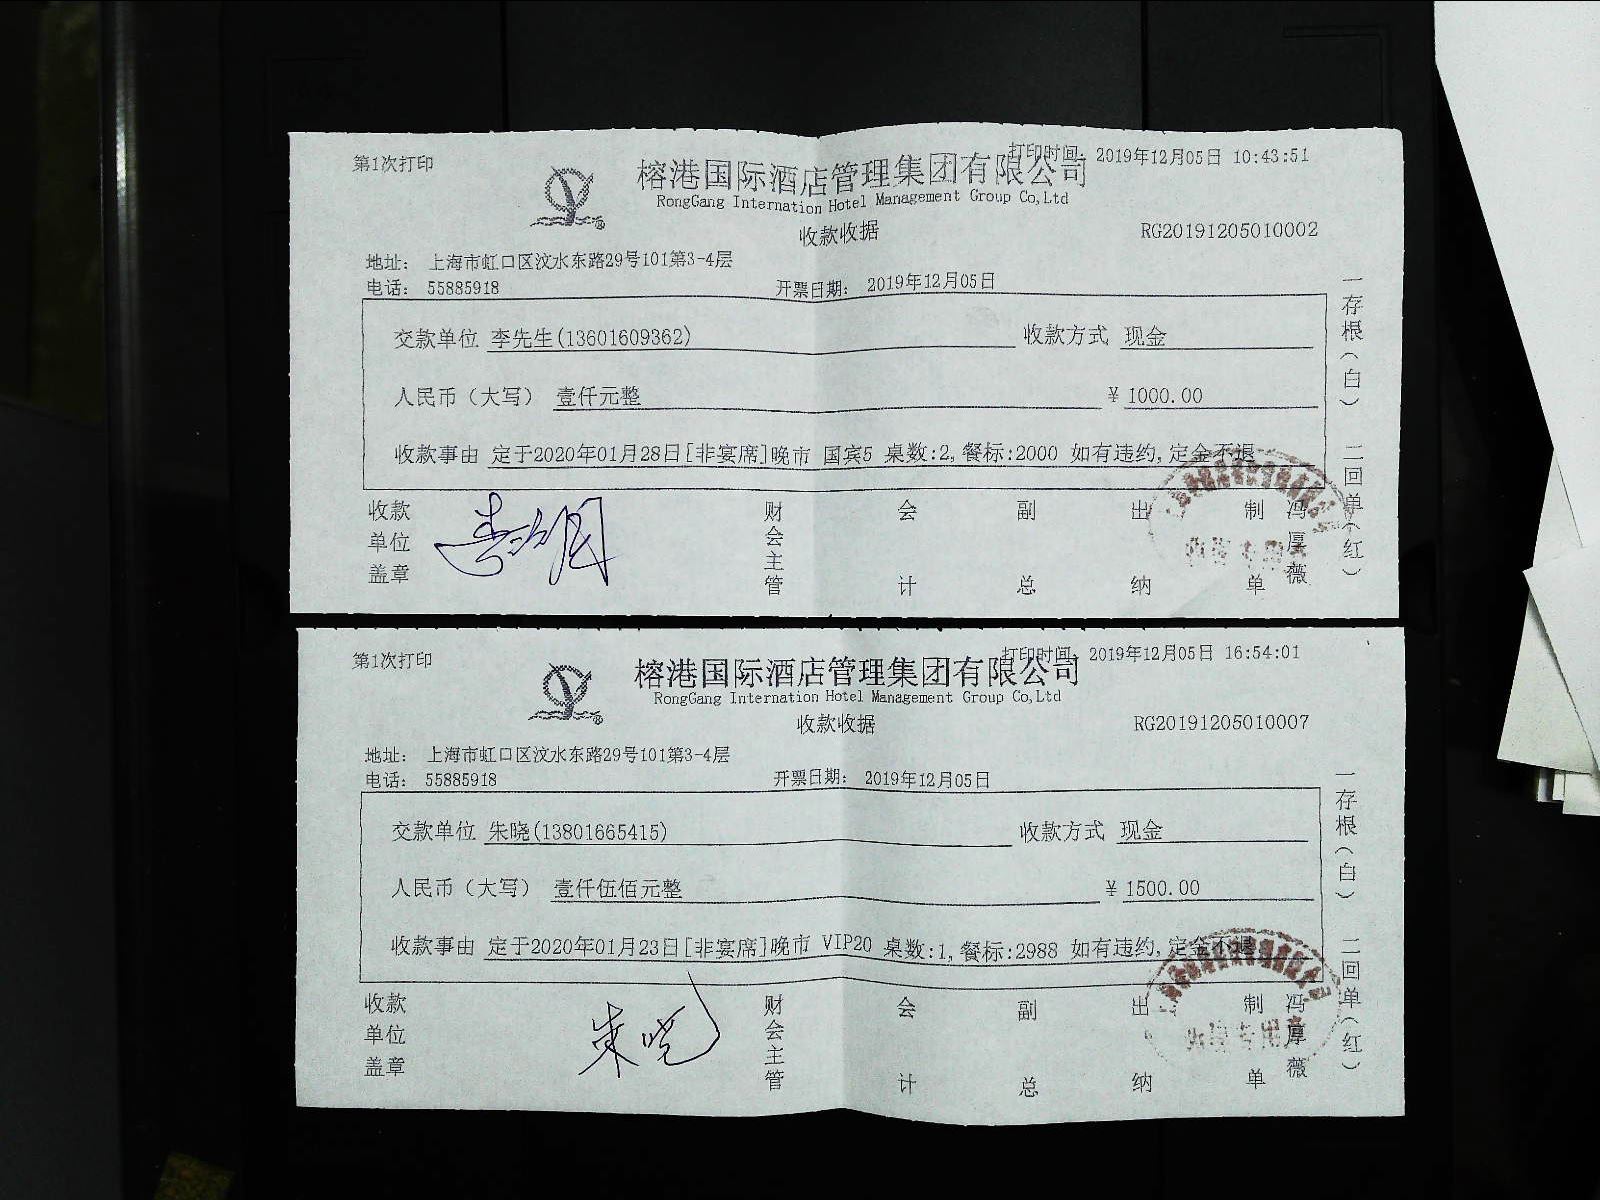 第1次打印
打印时间: 2019年12月05日 10:43:51
榕港国际酒店管理集团有限公司
RongGang Internation Hotel Management Group Co,Ltd
收款收据
RG20191205010002
地址: 上海市虹口区汶水东路29号101第3-4层
电话: 55885918
开票日期: 2019年12月05日
交款单位 李先生(13601609362) 收款方式 现金
人民币（大写） 壹仟元整 ￥ 1000.00
收款事由 定于2020年01月28日[非宴席]晚市 国宾5 桌数:2,餐标:2000 如有违约,定金不退
收款单位盖章
财会主管
会计
副总
出纳
制单 冯厚薇
一存根(白) 二回单(红)
第1次打印
打印时间: 2019年12月05日 16:54:01
榕港国际酒店管理集团有限公司
RongGang Internation Hotel Management Group Co,Ltd
收款收据
RG20191205010007
地址: 上海市虹口区汶水东路29号101第3-4层
电话: 55885918
开票日期: 2019年12月05日
交款单位 朱晓(13801665415) 收款方式 现金
人民币（大写） 壹仟伍佰元整 ￥ 1500.00
收款事由 定于2020年01月23日[非宴席]晚市 VIP20 桌数:1,餐标:2988 如有违约,定金不退
收款单位盖章
朱晓
财会主管
会计
副总
出纳
制单 冯厚薇
一存根(白) 二回单(红)